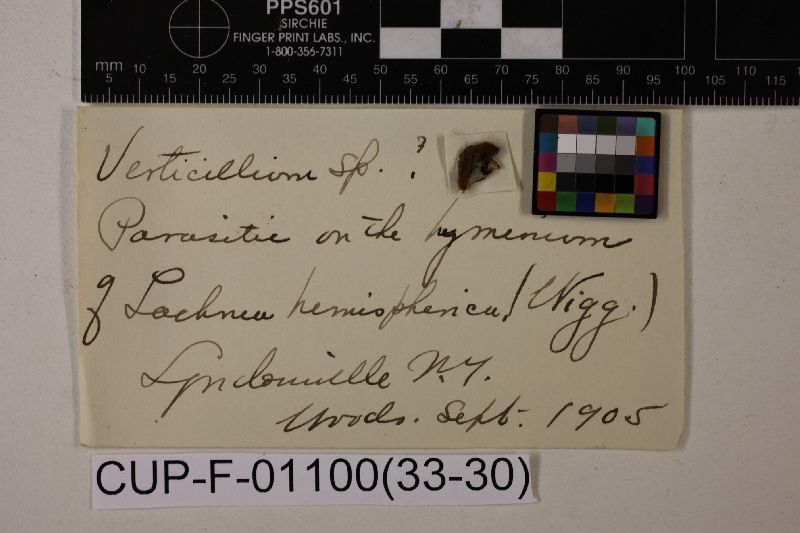 PPS601
SIRCHIE
FINGER PRINT LABS., INC.
1-800-356-7311
mm 5 10 15 20 25 30 35 40 45 50 55 60 65 70 75 80 85 90 95 100 105 110 115
Verticillium sp. ?
Parasitic on the hymenium
of Lachnea hemispherica (Wigg.)
Lyndonville N.Y.
Woods. Sept. 1905
CUP-F-01100(33-30)